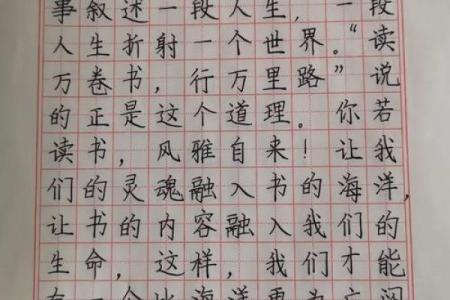 事叙述一段人生，一段
人生折射一个世界。“读
万卷书，行万里路”说
的正是这个道理。你若
读书，风雅自来！让我
们的灵魂融入书的海洋，
让书的内容融入我们的
生命，这样，我们才能
有一个比海洋更为广阔